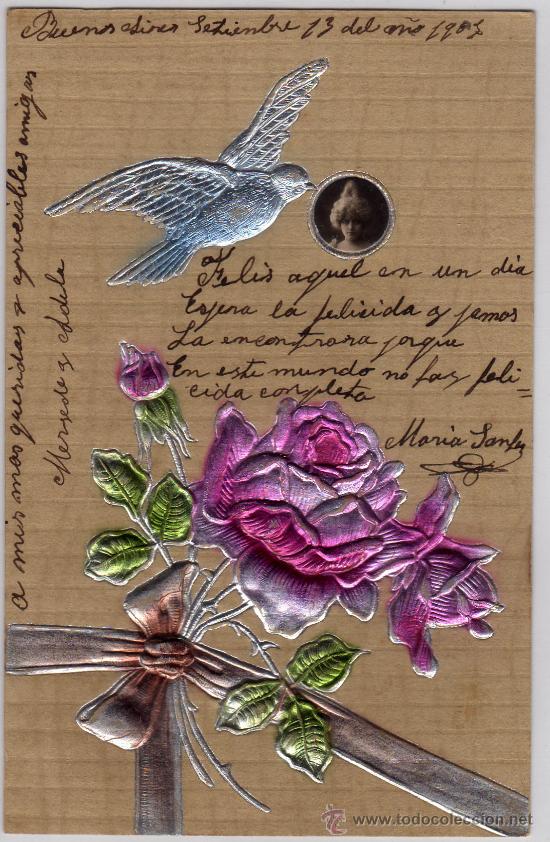 Buenos Aires Setiembre 13 del año 1905
a mis mas queridas y apreciables amigas
Mersede y Adela
Felis aquel en un dia
Espera la felisida y jamas
La encontrara porque
En este mundo no hay feli=
cida completa
Maria
todocoleccion
www.todocoleccion.net